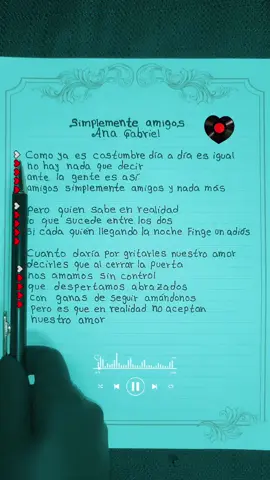 Simplemente amigos
Ana Gabriel
Como ya es costumbre día a día es igual
no hay nada que decir
ante la gente es así
amigos simplemente amigos y nada más
pero quien sabe en realidad
lo que sucede entre los dos
si cada quien llegando la noche finge un adiós
Cuanto daría por gritarles nuestro amor
decirles que al cerrar la puerta
nos amamos sin control
que despertamos abrazados
con ganas de seguir amándonos
pero es que en realidad no aceptan
nuestro amor